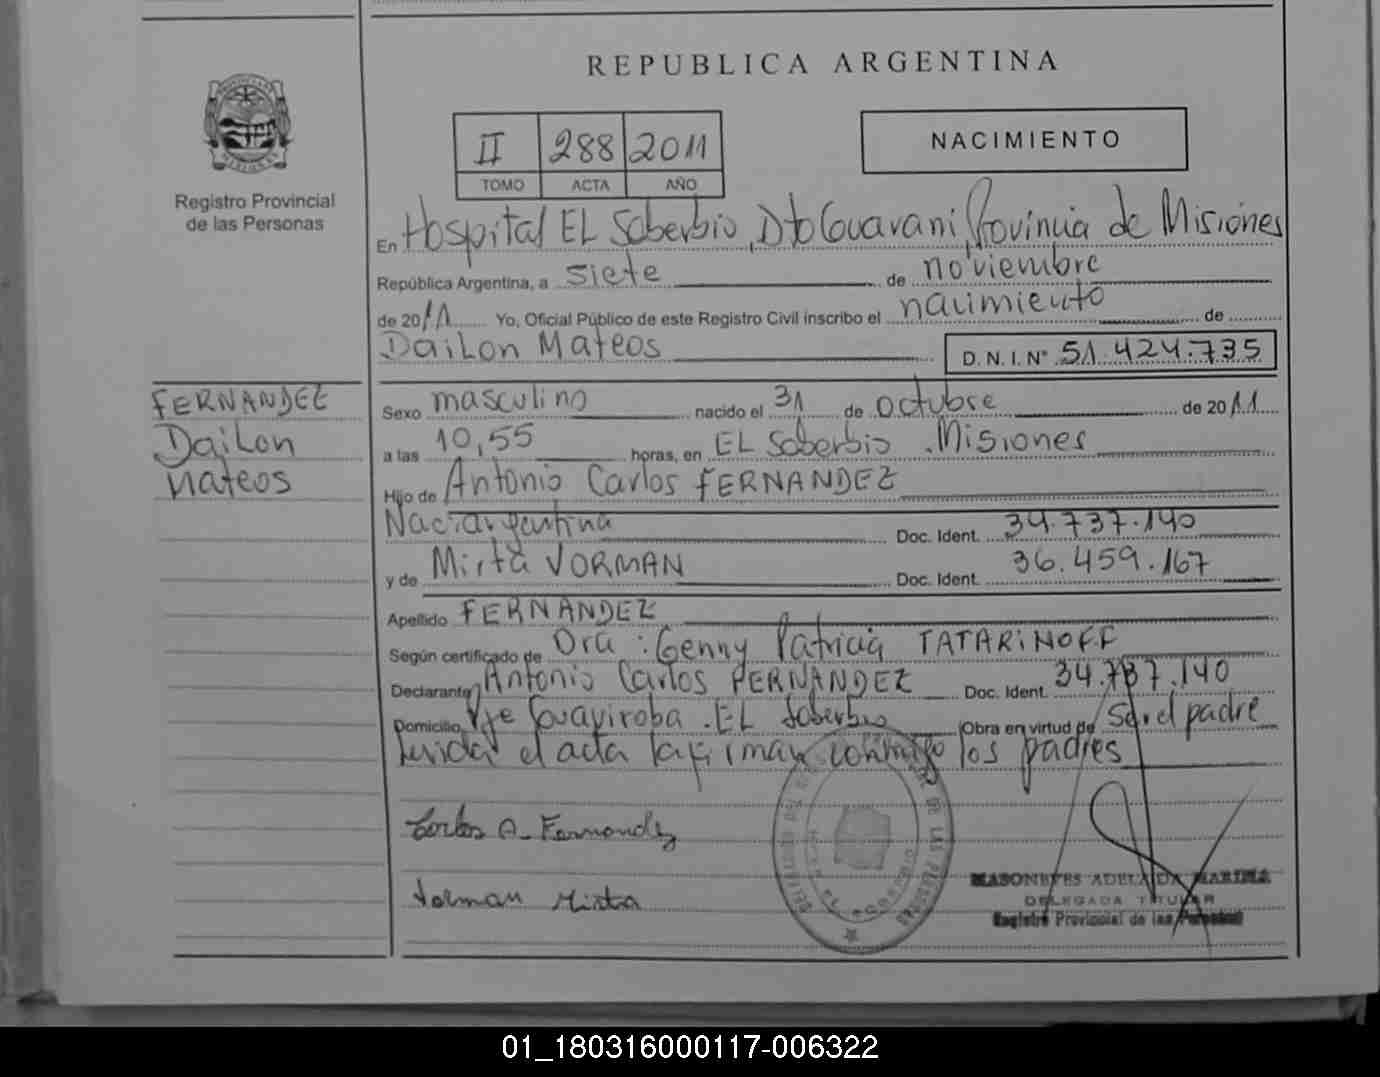 REPUBLICA ARGENTINA
II 288 2011
TOMO ACTA AÑO
NACIMIENTO
Registro Provincial
de las Personas
En Hospital EL Soberbio, Dto Guarani, Provincia de Misiones
República Argentina, a siete de noviembre
de 2011 Yo, Oficial Público de este Registro Civil inscribo el nacimiento de
Dailon Mateos D. N. I. Nº 51.424.735
FERNANDEZ
Dailon
Mateos
Sexo masculino nacido el 31 de octubre de 2011
a las 10,55 horas, en EL Soberbio. Misiones
Hijo de Antonio Carlos FERNANDEZ
Nac: argentina Doc. Ident. 34.737.140
y de Mirta VORMAN Doc. Ident. 36.459.167
Apellido FERNANDEZ
Según certificado de Dra: Genny Patricia TATARINOFF
Declarante Antonio Carlos FERNANDEZ Doc. Ident. 34.737.140
Domicilio Pje Guaviroba. EL Soberbio Obra en virtud de ser el padre
Leída el acta la firman conmigo los padres
Carlos A. Fernandez
Vorman Mirta
ADELAIDA MARINA
DELEGADA TITULAR
Registro Provincial de las Personas
01_180316000117-006322